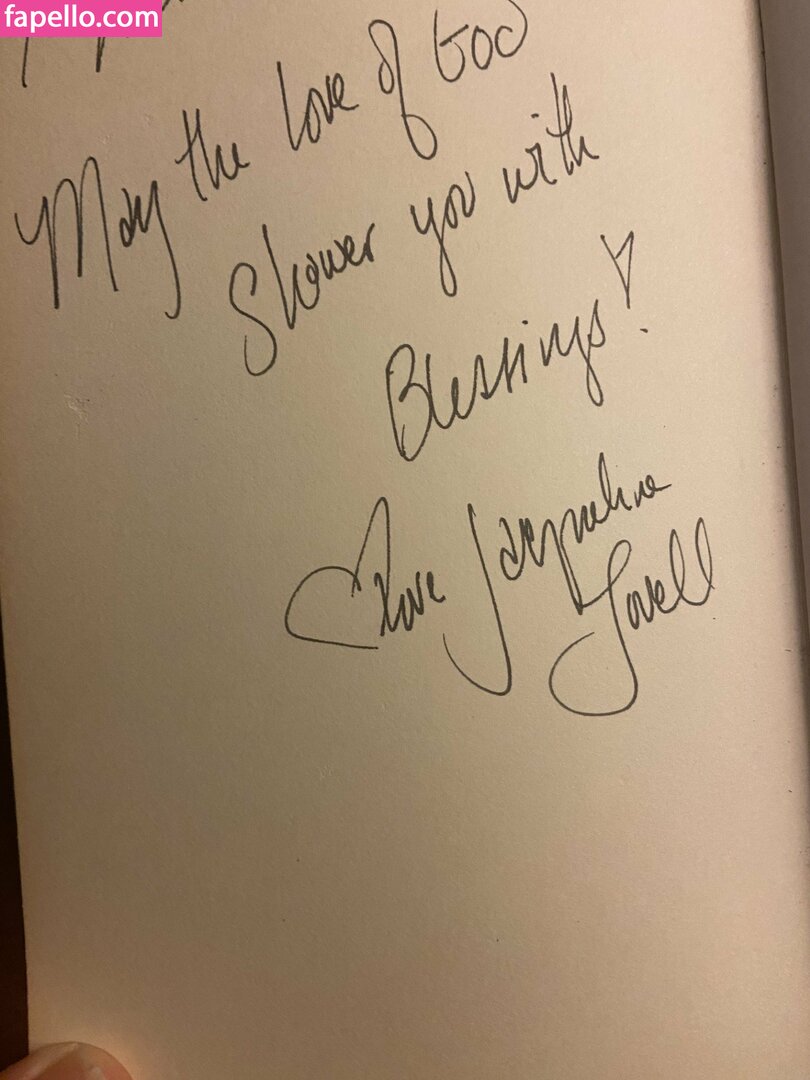 fapello.com
May the love of God
Shower you with
Blessings!
Love Jacqueline
Lovell